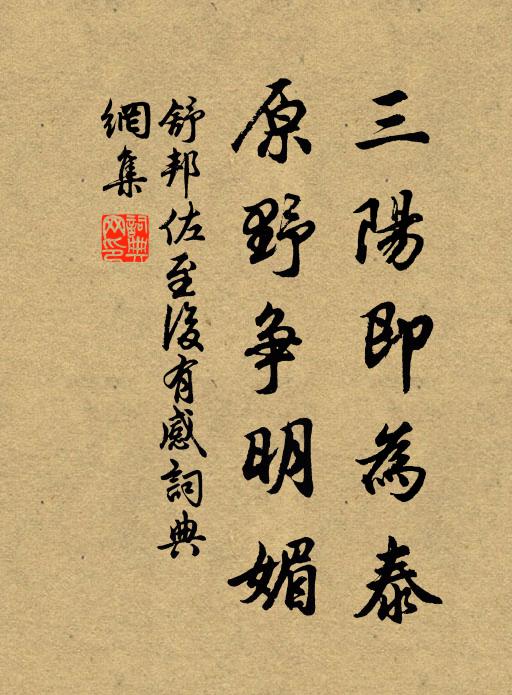 三陽即為泰
原野爭明媚
舒邦佐至後有感詞典
網集
詞典網印